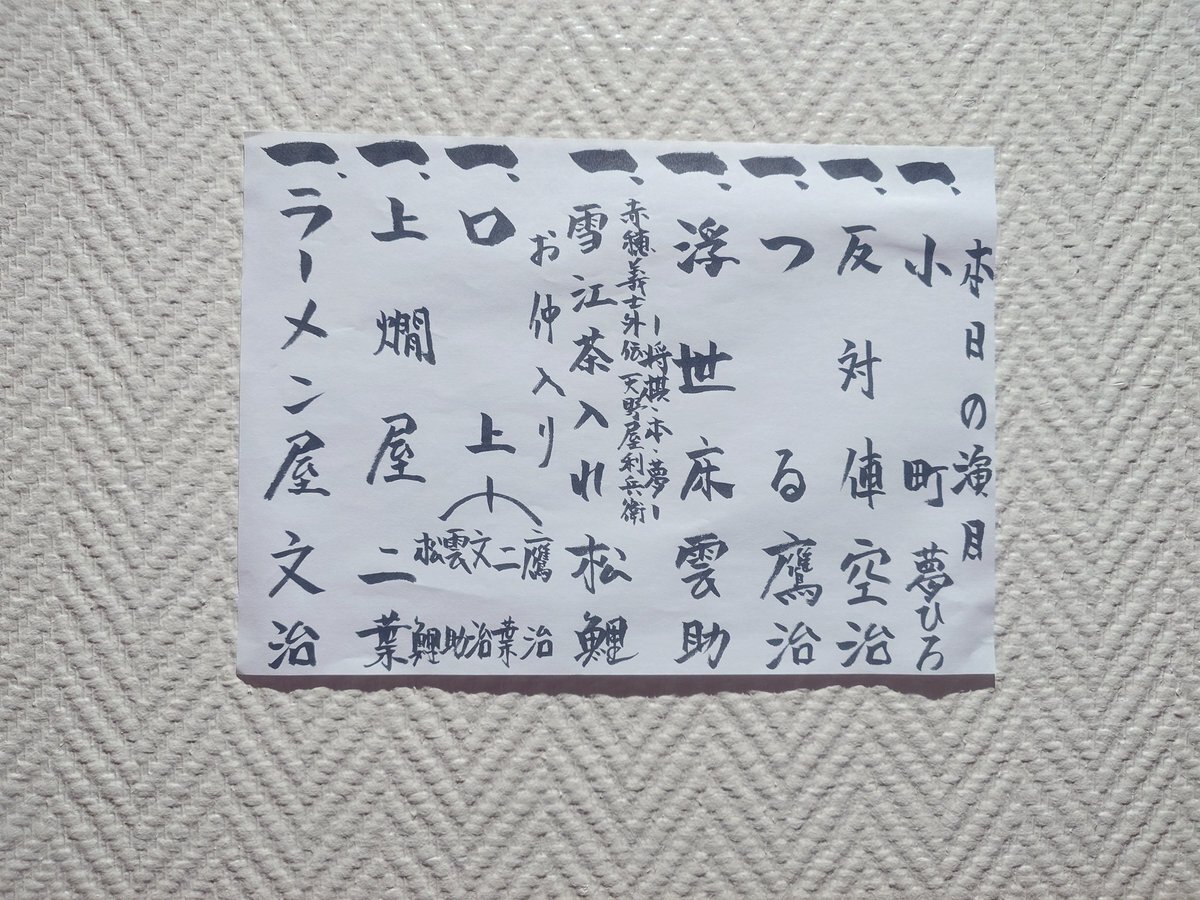 本日の演目
一、小町 夢ひろ
一、反対俥 空治
一、つる 鷹治
一、浮世床 雲助
ー将棋、本、夢ー
赤穂義士外伝 天野屋利兵衛
一、雪江茶入れ 松鯉
お仲入り
一、口上
鷹治
二葉
文治
雲助
松鯉
一、上燗屋 二葉
一、ラーメン屋 文治